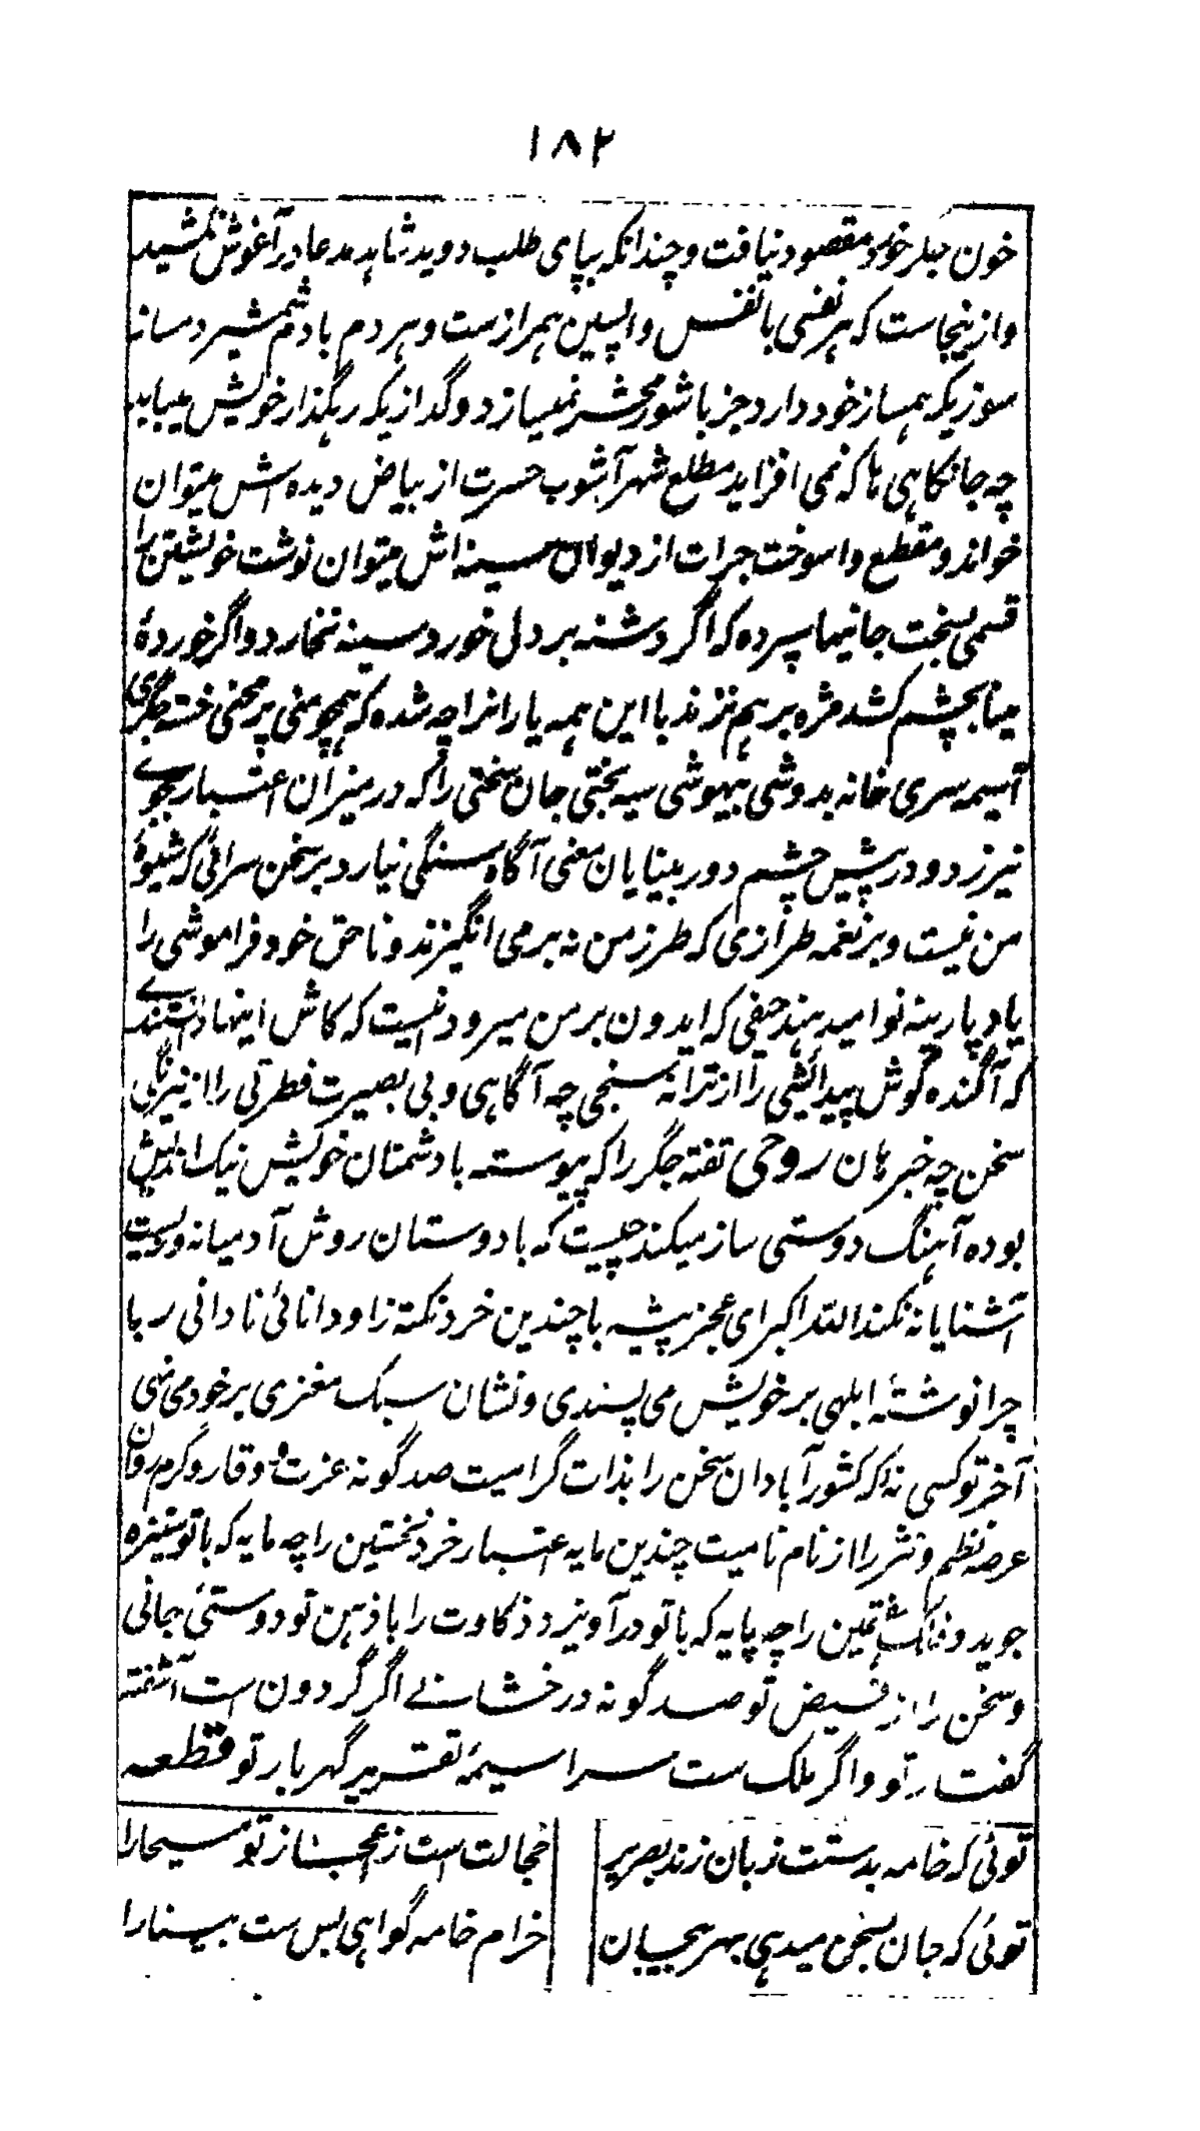 ۱۸۲
خون جگر خورد مقصود نیافت و چندانکه بپای طلب دوید شاهد مدعا در آغوش نکشید
وازینجاست که هر نفسی با نفس واپسین همرازست و هر دم با دم شمشیر دمساز
سوزیکه همساز خود دارد جز با شور محشر نمیسازد و گدازیکه رهگذار خویش مییابد
چه جانکاهی ها که نمی افزاید مطلع شهر آشوب حسرت از بیاض دیده اش میتوان
خواند و مقطع واسوخت جرات از دیوان سینه اش میتوان نوشت خویشتن را
قسمی بسخت جانیها سپرده که اگر دشنه بر دل خورد سینه نخارد و اگر خوردهٔ
مینا بچشم کشد مژه بر هم نزند با این همه یارانرا چه شده که همچو منی پر محنی خسته جگری
آسیمه سری خانه بدوشی بیهوشی سیه بختی جان سختی را که در میزان اعتبار بجوے
نیرزد و در پیش چشم دور بینایان معنی آگاه سنگی نیارد بر سخن سرائی که شیوهٔ
من نیست و بر نغمه طرازی که طرز من نه برمی انگیزند و ناحق خود فراموشی را
یاد پارینه نوا میدهند حیفی که ایدون بر من میرود انیست که کاش اینها دانستندے
که آگنده گوش پیدائشی را از ترانه سنجی چه آگاهی و بی بصیرت فطرتی را از نیرنگی
سخن چه خبر هان روحی تفته جگر را که پیوسته با دشمنان خویش نیک اندیش
بوده آهنگ دوستی ساز میکند چیست که با دوستان روش آدمیانه و سیرت
آشنایانه نکند الله اکبر ای عجز پیشه با چندین خرد نکته زا و دانائی نادانی ربا
چرا نوشتهٔ ابلهی بر خویش می پسندی و نشان سبک مغزی بر خود می نهی
آخر تو کسی نهٔ که کشور آبادان سخن را بذات گرامیت صد گونه عزت و وقار و گرم روان
عرصه نظم و نثر را از نام نامیت چندین مایه اعتبار خرد نخستین را چه مایه که با تو ستیزه
جوید و فلک هشتمین را چه پایه که با تو در آویزد ذکاوت را با ذهن تو دوستیٔ جانی
و سخن را از فیض تو صد گونه درخشانے اگر گردون است آشفته
گفتار تو و اگر ملک ست سراسیمهٔ تقریر گهربار تو قطعه
توئی که خامه بدستت زبان زند بصریر | خجالت است ز اعجاز تو مسیحا را
توئی که جان بسخن میدهی بهر سجیان | خرام خامه گواهی بس ست بینا را